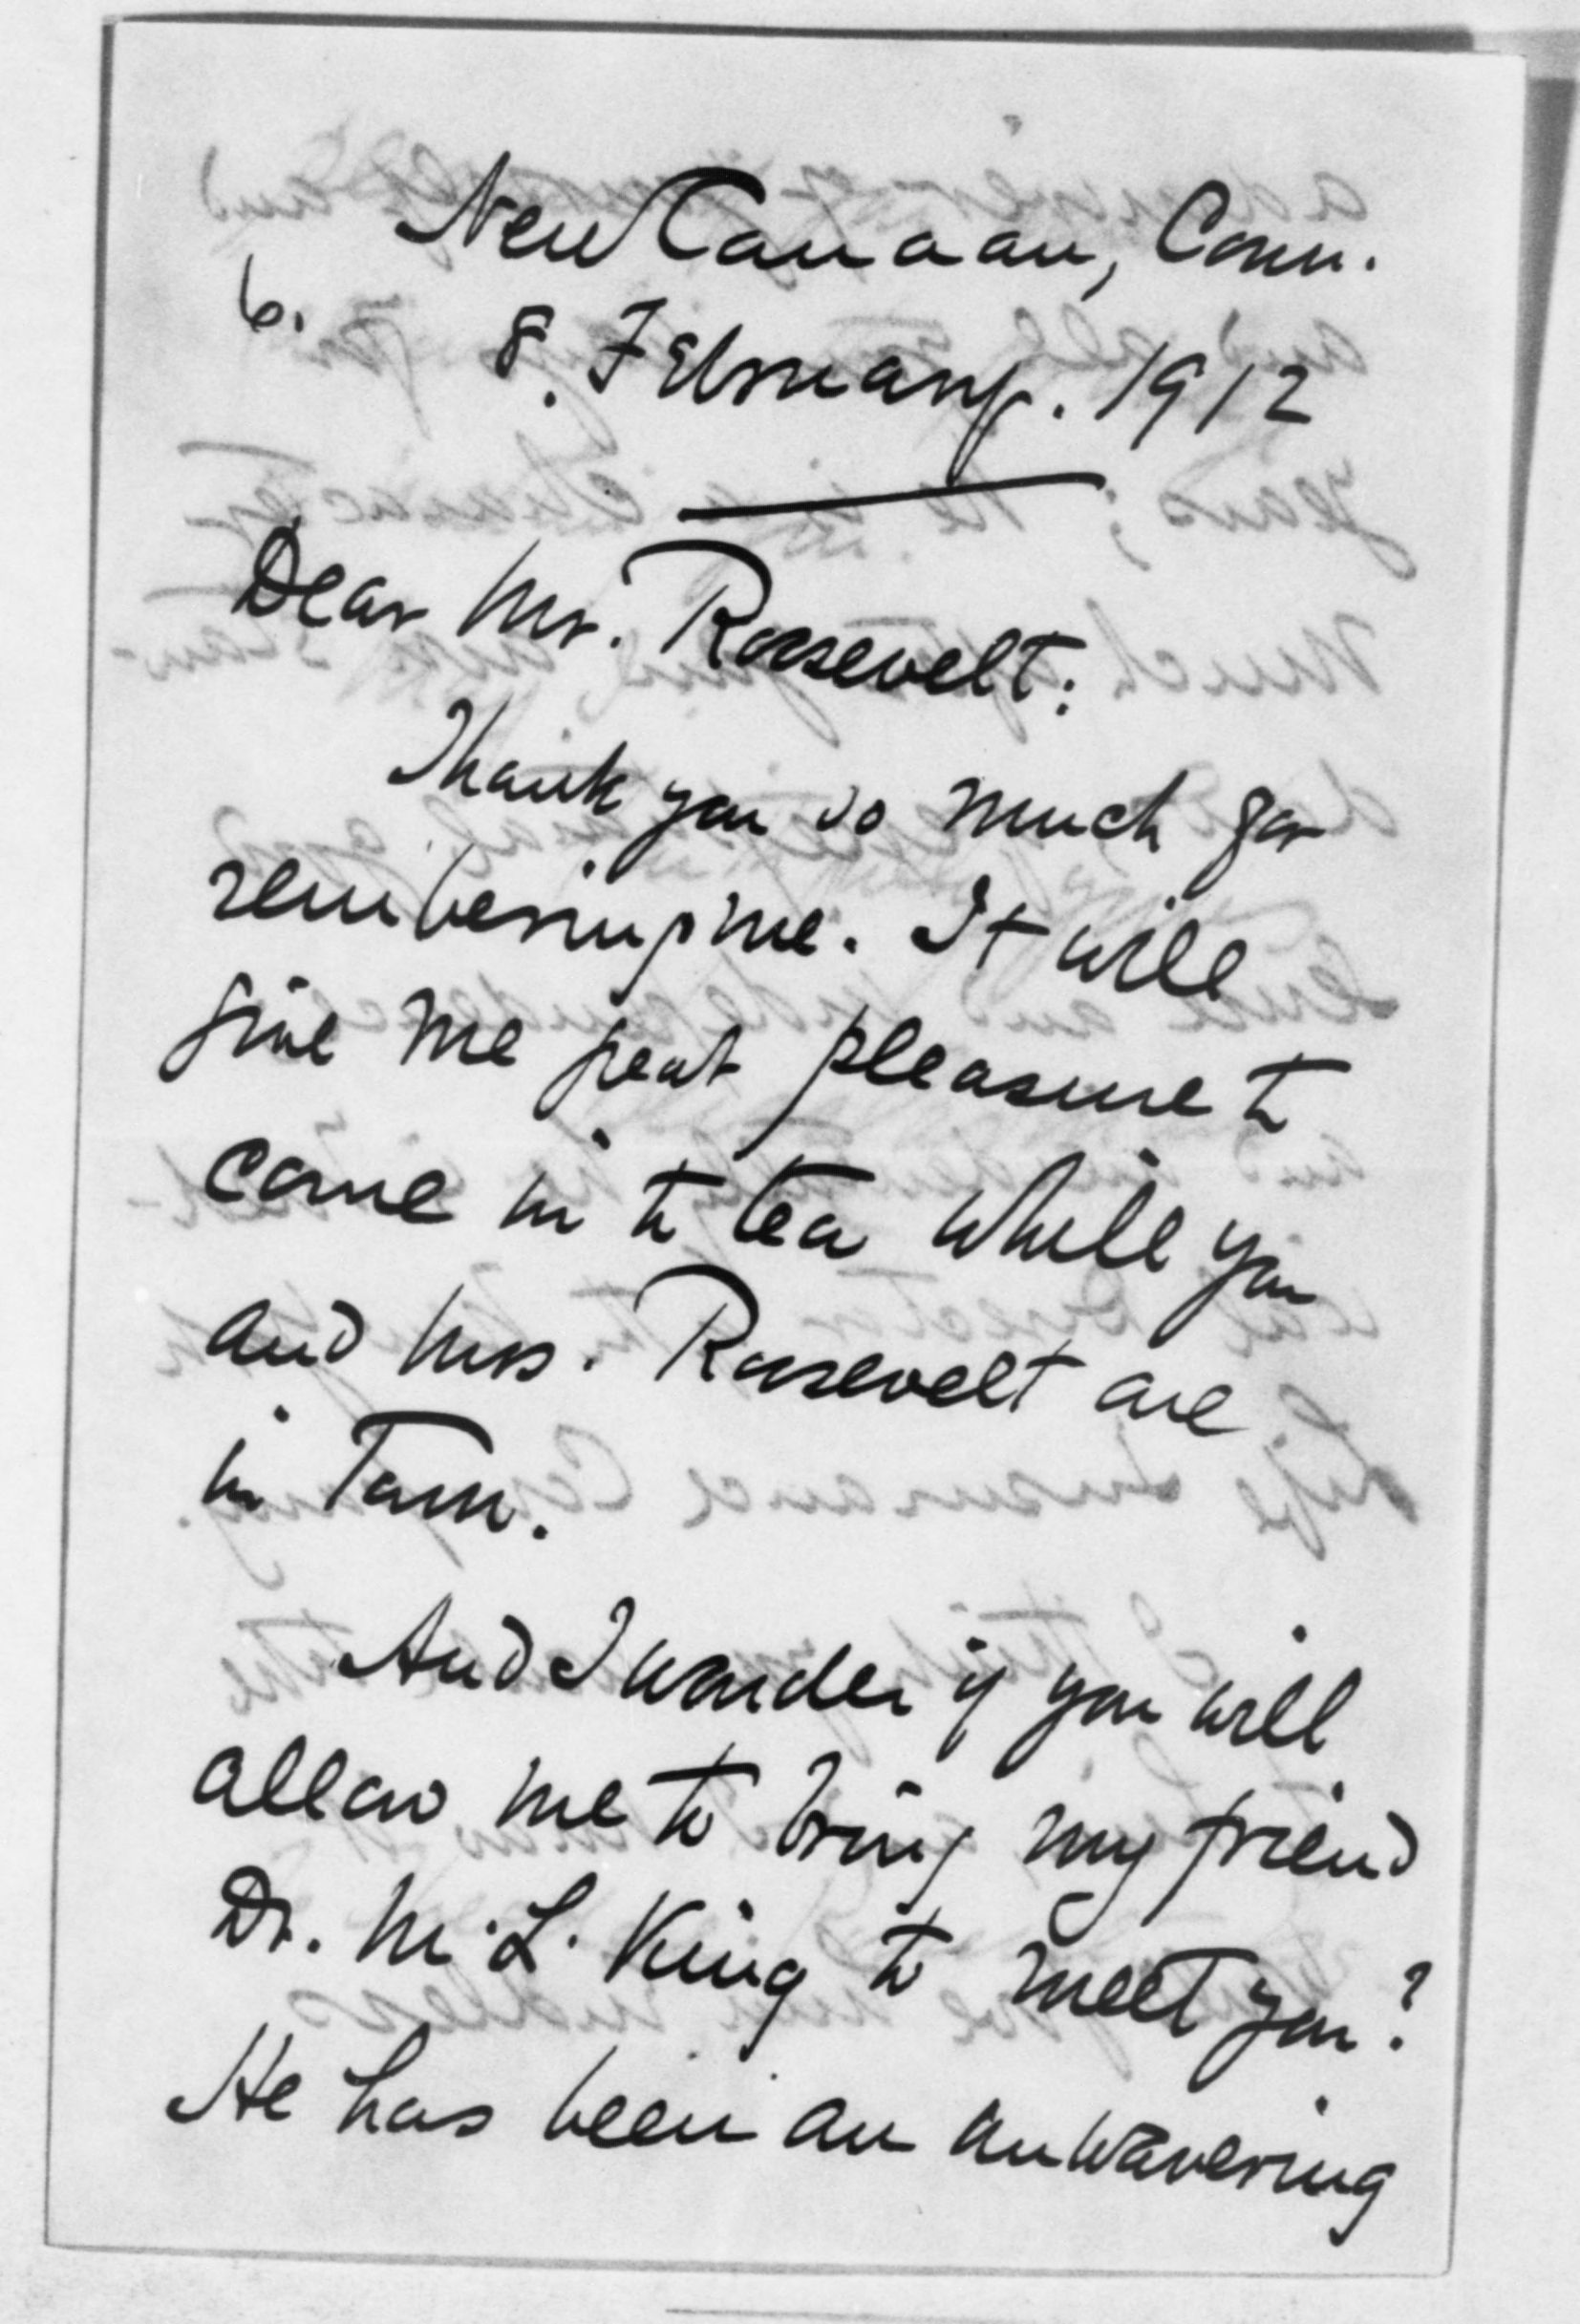 New Canaan, Conn.
6.
8. February. 1912
Dear Mr. Roosevelt:
Thank you so much for
rembering me. It will
give me great pleasure to
come in to tea while you
and Mrs. Roosevelt are
in Town.
And I wonder if you will
allow me to bring my friend
Dr. M. L. King to meet you?
He has been an unwavering